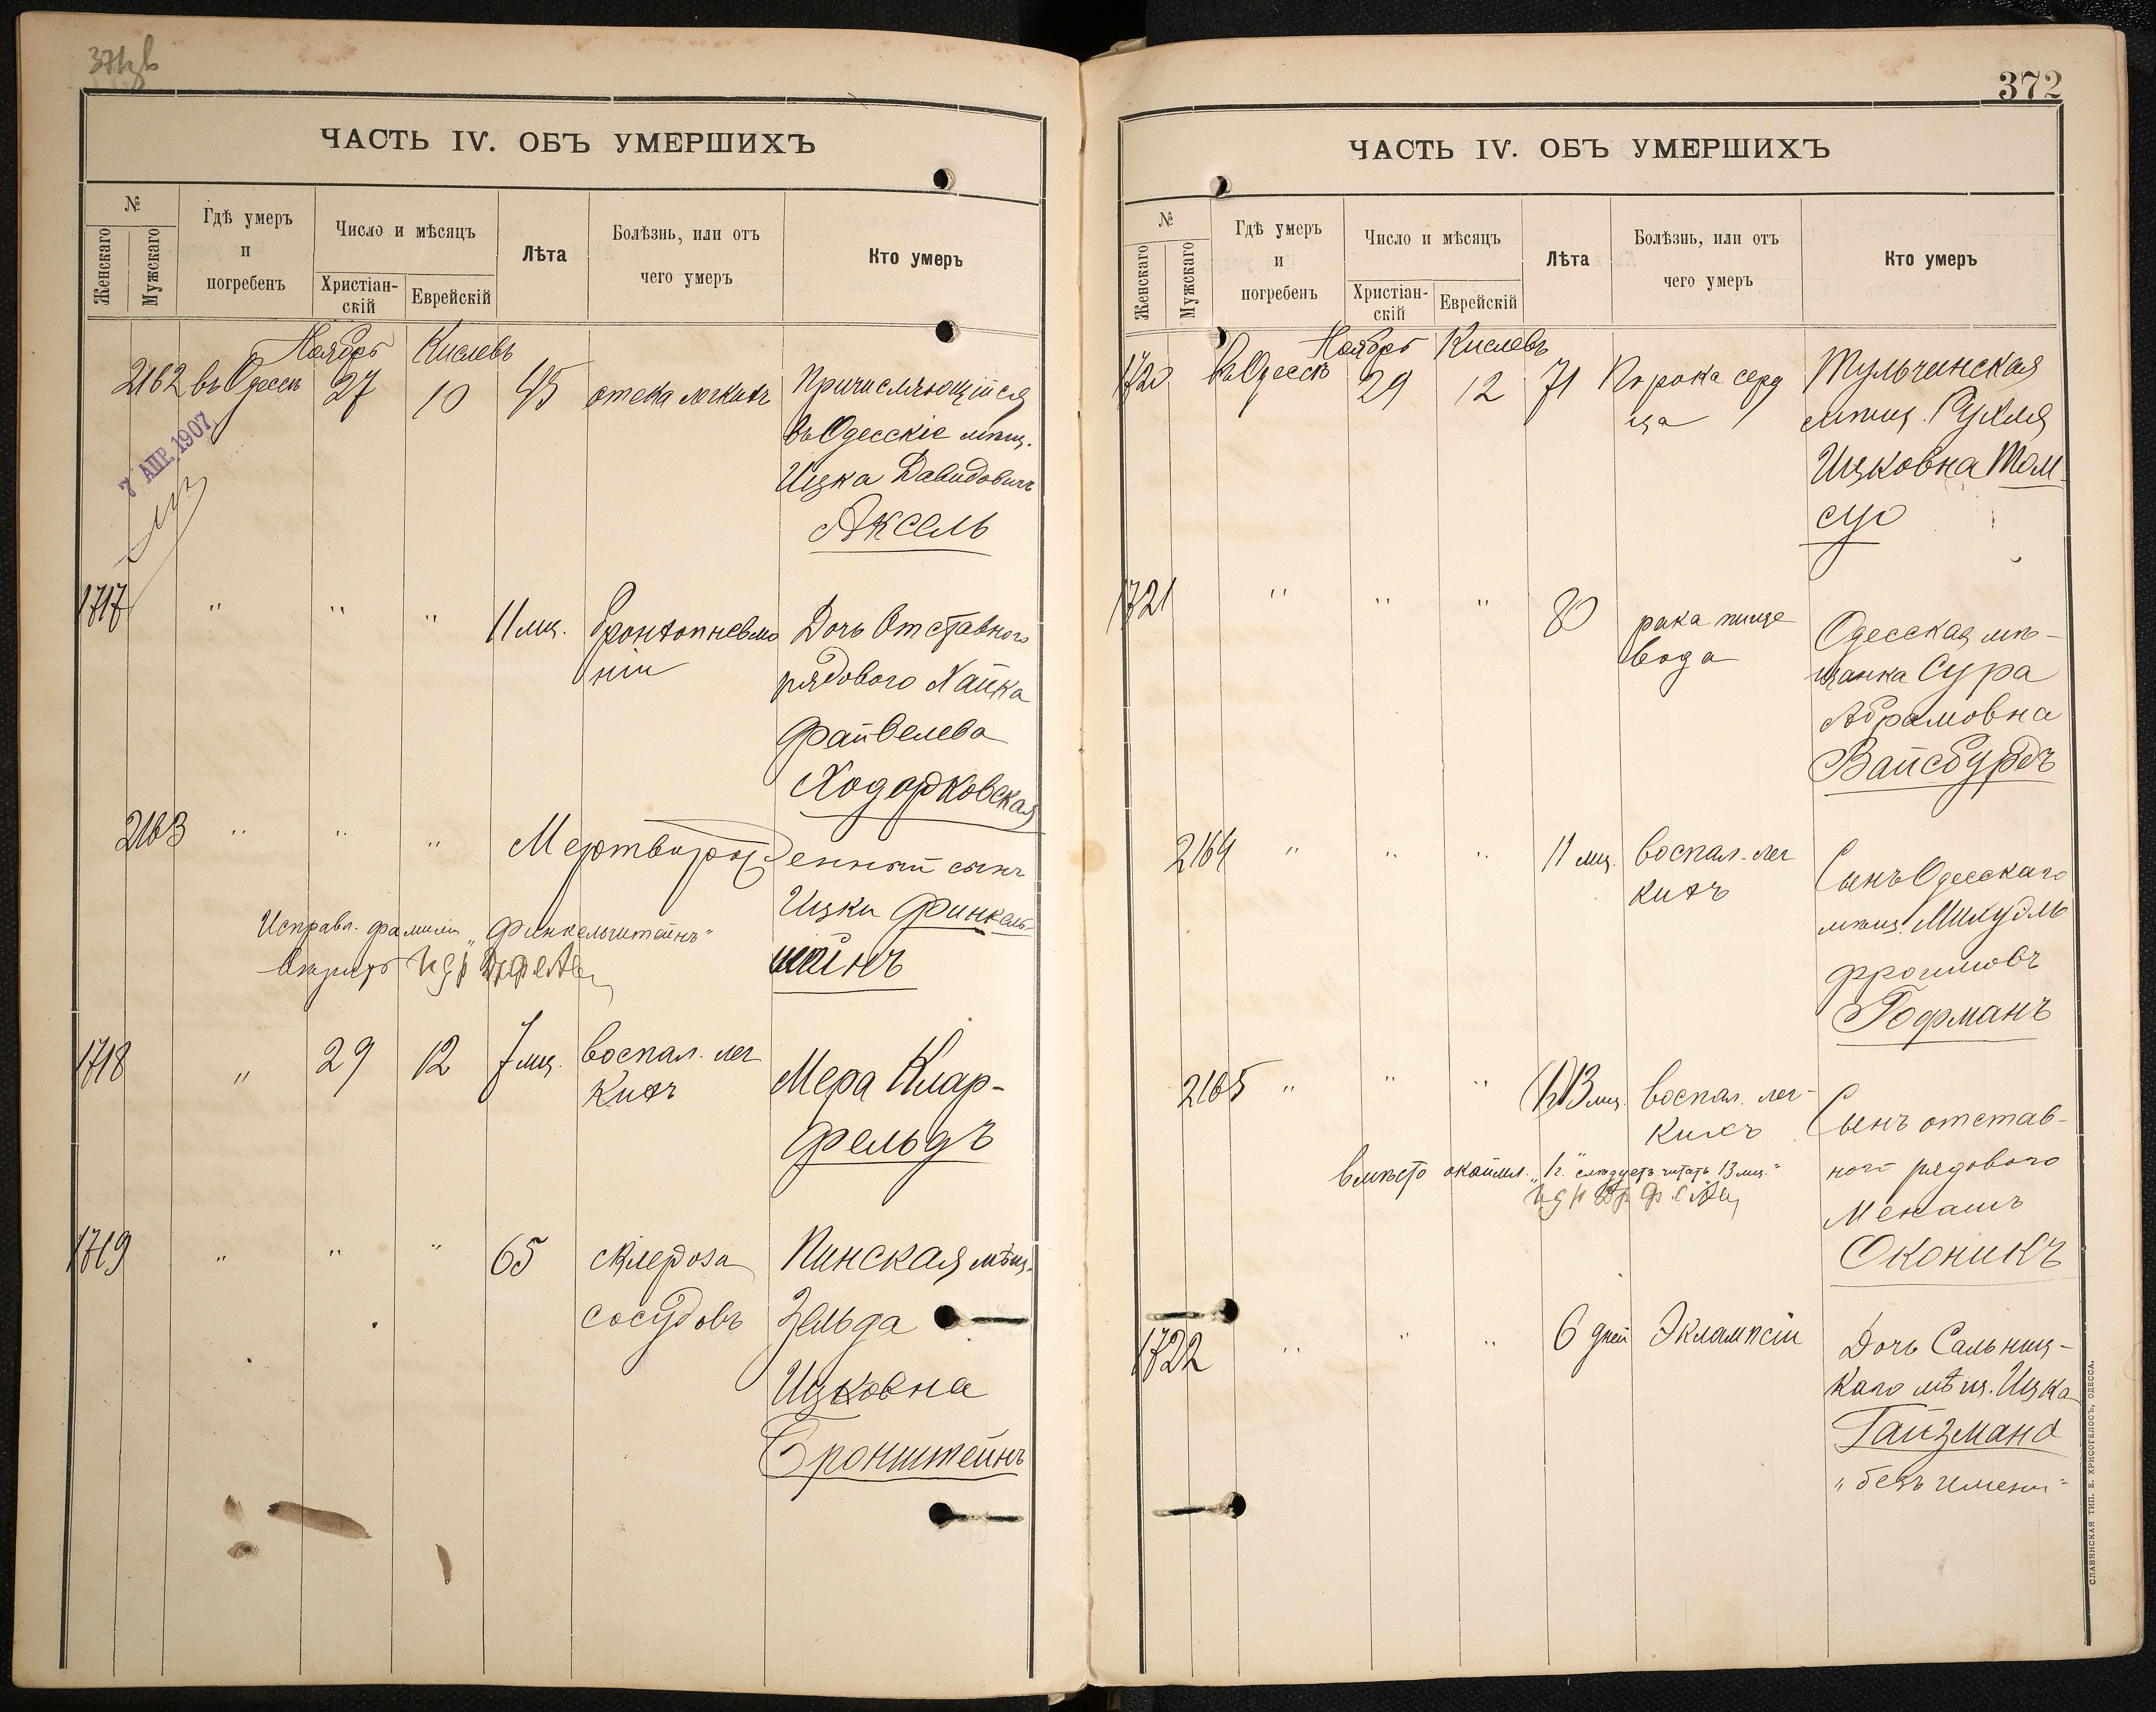 ЧАСТЬ IV. ОБЪ УМЕРШИХЪ
№
Женскаго
Мужскаго
Гдѣ умеръ
и
погребенъ
Число и мѣсяцъ
Христіан-
скій
Еврейскій
Лѣта
Болѣзнь, или отъ
чего умеръ
Кто умеръ
Ноябрь Кислевъ
2162 въ Одессѣ 27 10 45 отека легкихъ Причисляющійся
въ Одесскіе мѣщ.
Ицка Давидовичъ
Аксель
7 АПР. 1907
1717 " " " 11 мц. бронхопневмо Дочь Отставного
ніи
рядового Хайка
Файвелева
Ходорковская
2163 " " " Мертворожденный сынъ
Ицки Финкель-
штейнъ
Исправл. фамилія „Финкельштейнъ"
1718 " 29 12 7 мц. воспал. лег
кихъ
Мера Клар-
фельдъ
1719 " " " 65 склероза Пинская мѣщ.
сосудовъ Зельда
Ицковна
Бронштейнъ
372
ЧАСТЬ IV. ОБЪ УМЕРШИХЪ
№
Женскаго
Мужскаго
Гдѣ умеръ
и
погребенъ
Число и мѣсяцъ
Христіан-
скій
Еврейскій
Лѣта
Болѣзнь, или отъ
чего умеръ
Кто умеръ
Ноябрь Кислевъ
1720 въ Одессѣ 29 12 71 Порока серд Тульчинская
ца
мѣщ. Рухля
Ицковна Том-
сую
1721 " " " 80 рака пище Одесская мѣ-
вода
щанка Сура
Абрамовна
Вайсбурдъ
2164 " " " 11 мц. воспал. лег
кихъ
Сынъ Одесскаго
мѣщ. Михуэль
Фроимовъ
Гофманъ
2165 " " " 13 мц. воспал. лег-
кихъ
Сынъ отстав-
ного рядового
Менашъ
Оконикъ
вмѣсто окаймл. „1 г." слѣдуетъ читать „13 мц."
1722 " " " 6 дней Эклампсіи Дочь Сальниц-
каго мѣщ. Ицка
Гайзмана
„безъ имени"
СЛАВЯНСКАЯ ТИП. Е. ХРИСОГЕЛОСЪ, ОДЕССА.